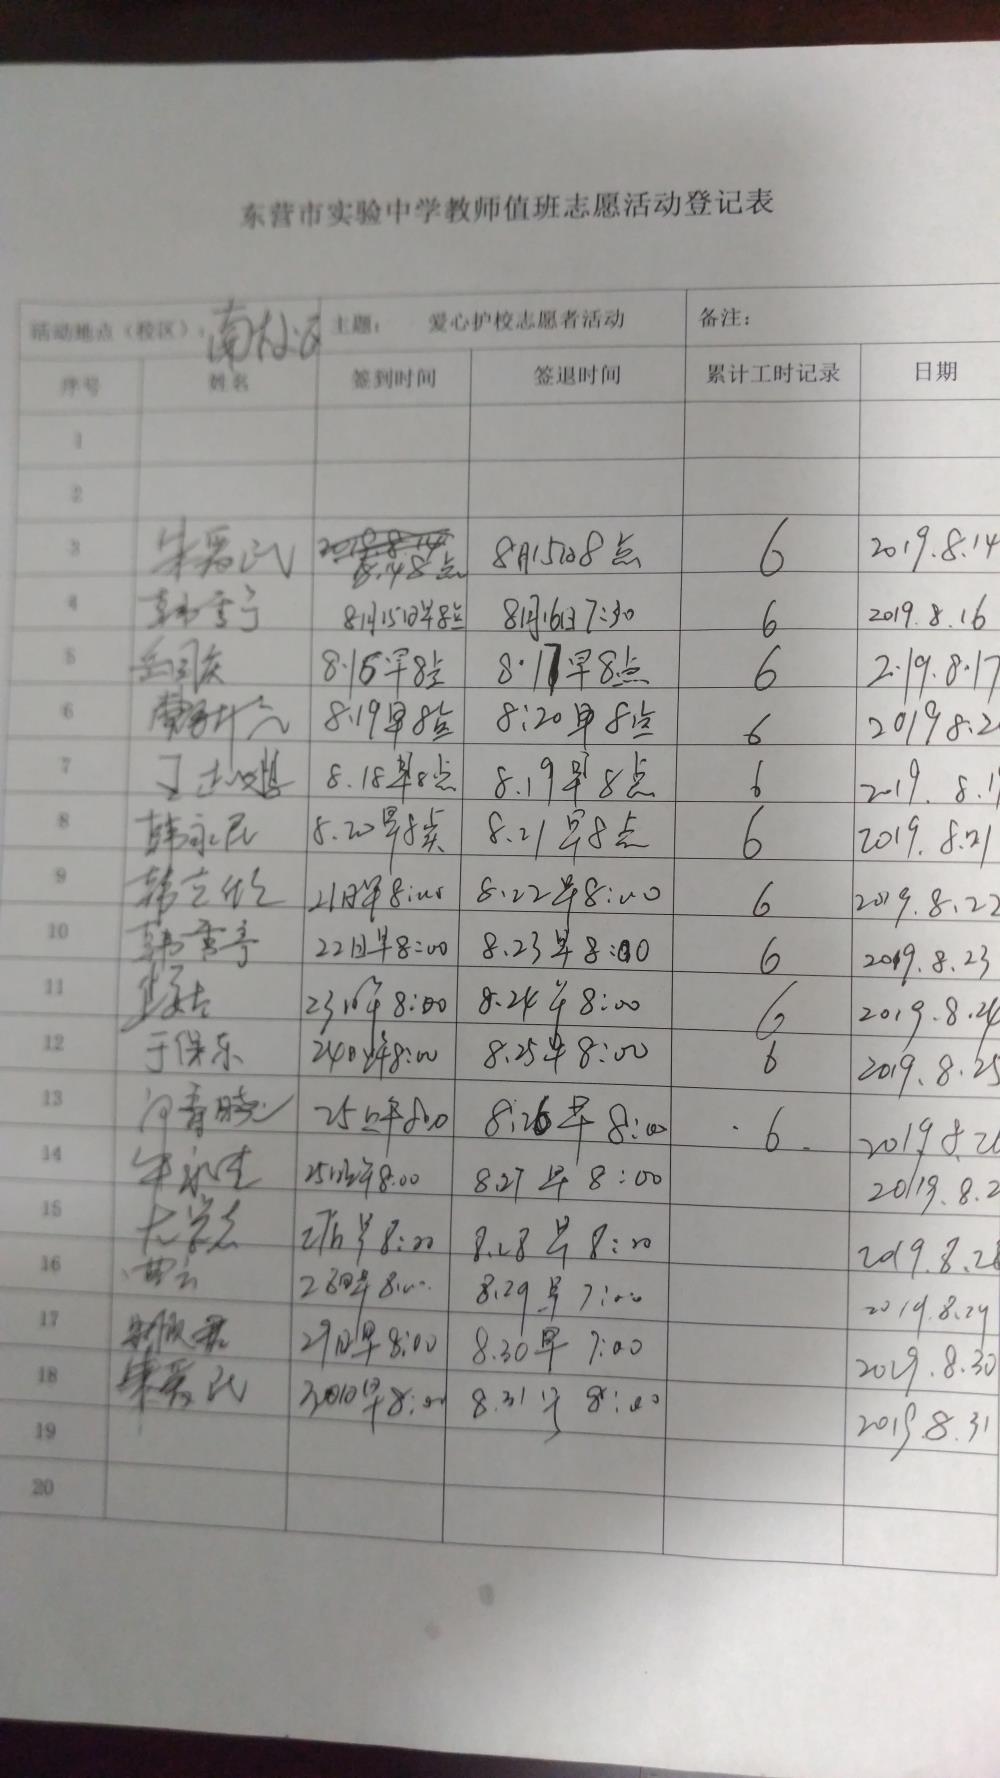 东营市实验中学教师值班志愿活动登记表
活动地点（校区）：南校区 主题： 爱心护校志愿者活动 备注：
序号 姓名 签到时间 签退时间 累计工时记录 日期
1
2
3 朱爱民 8.14 8点 8月15日8点 6 2019.8.14
4 韩雪亭 8月15日早8点 8月16日7:30 6 2019.8.16
5 8.16早8点 8.17早8点 6 2.19.8.17
6 8.19早8点 8:20早8点 6 2019 8.20
7 8.18早8点 8.19早8点 6 2019. 8.1
8 韩永民 8.20早8点 8.21早8点 6 2019. 8.21
9 韩立 21日早8:00 8.22早8:00 6 2019.8.22
10 韩雪亭 22日早8:00 8.23早8:00 6 2019.8.23
11 23日早8:00 8.24早8:00 6 2019.8.24
12 于保东 24日早8:00 8.25早8:00 6 2019.8.25
13 25日早8:00 8:26早8:00 6 2019.8.2
14 25日早8:00 8.27早8:00 2019.8.2
15 早8:00 8.28早8:00 2019.8.28
16 早8:00 8.29早7:00 2019.8.29
17 29日早8:00 8.30早7:00 2019.8.30
18 朱爱民 30日早8:00 8.31早8:00 2019.8.31
19
20